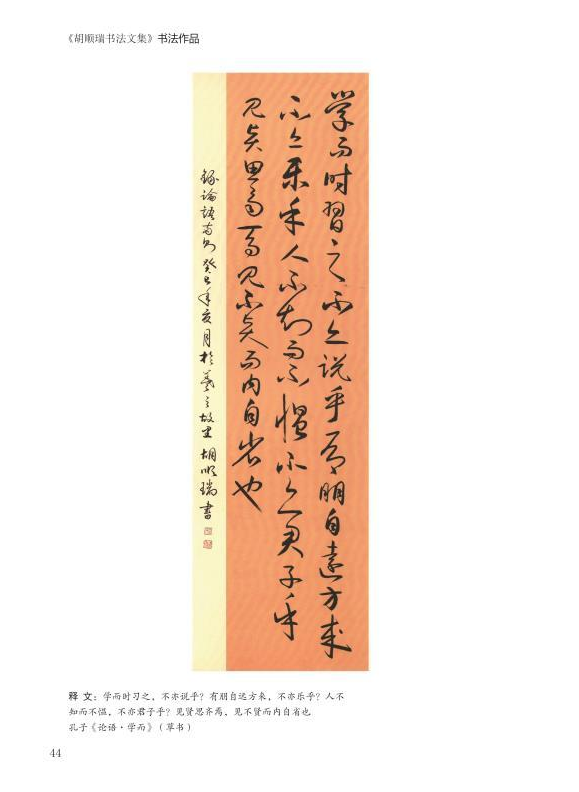 《胡顺瑞书法文集》书法作品
学而时習之不亦说乎有朋自遠方来
不亦乐乎人不知而不愠不亦君子乎
见贤思齐焉见不贤而内自省也
錄論語句 癸巳年亥月於羲之故里 胡顺瑞書
释 文：学而时习之，不亦说乎？有朋自远方来，不亦乐乎？人不
知而不愠，不亦君子乎？见贤思齐焉，见不贤而内自省也
孔子《论语·学而》（草书）
44